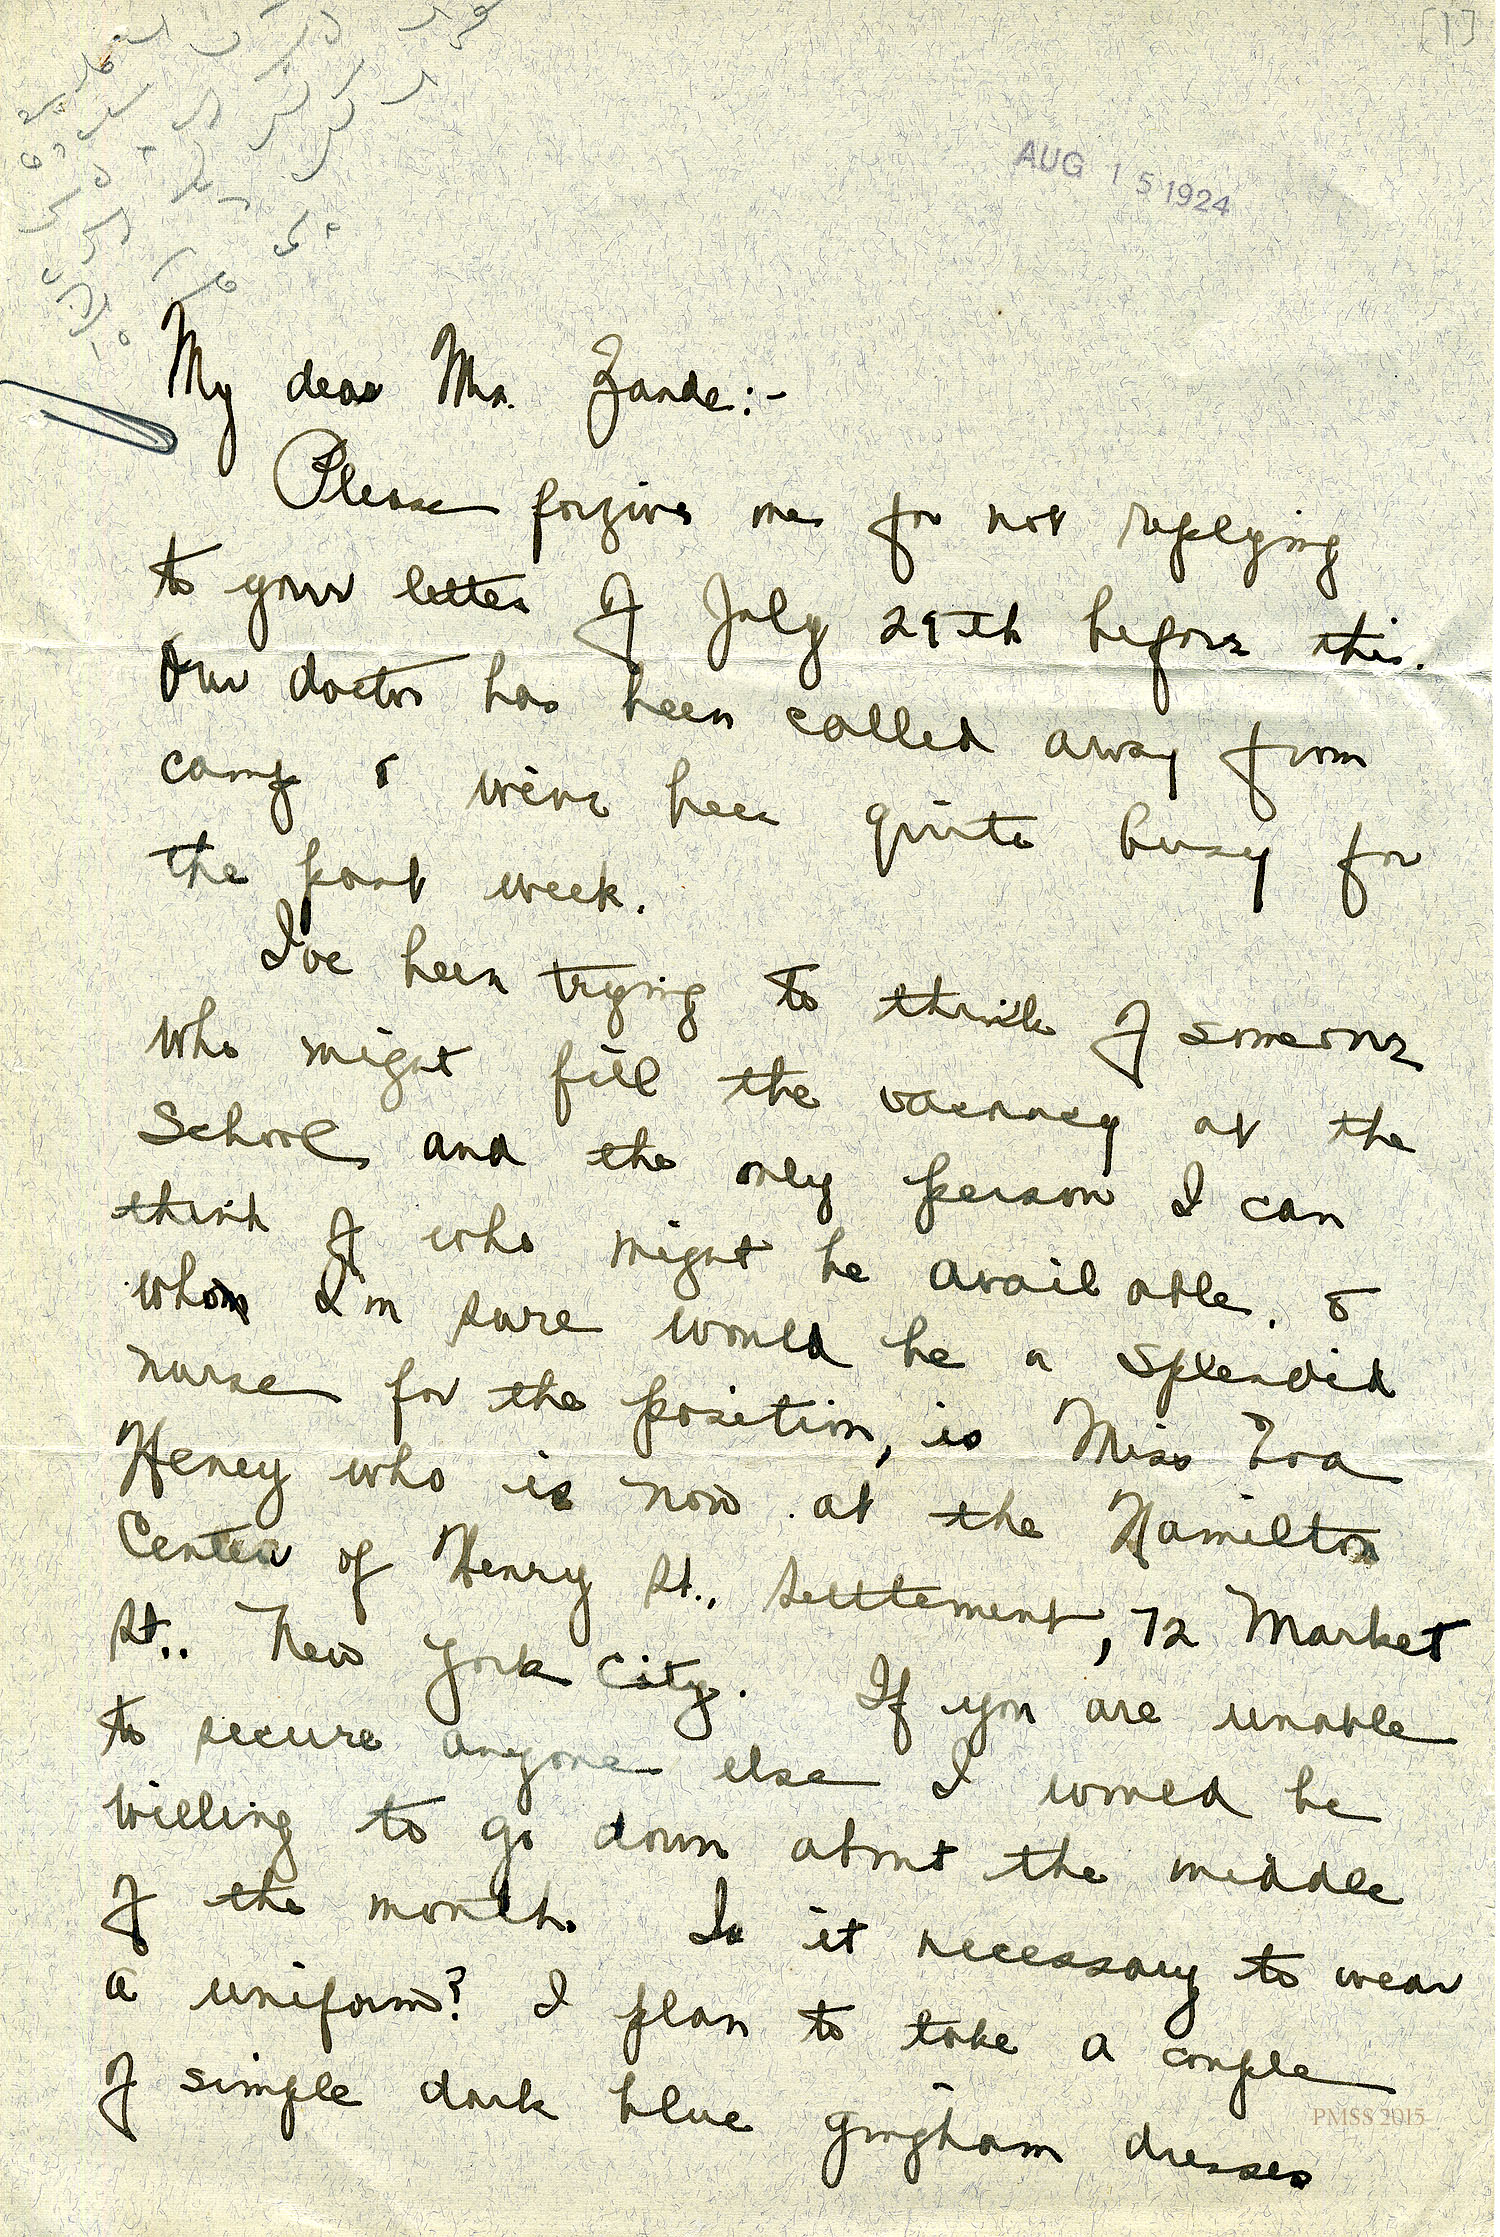 [1]
AUG 15 1924
My dear Mrs. Zande:-
Please forgive me for not replying
to your letter of July 29th before this.
Our doctor has been called away from
camp & we've been quite busy for
the past week.
I've been trying to think of someone
who might fill the vacancy at the
School and the only person I can
think of who might be available, &
whom I'm sure would be a splendid
nurse for the position, is Miss
Heney who is now at the Hamilton
Center of Henry St., Settlement, 72 Market
St.. New York City. If you are unable
to secure anyone else I would be
willing to go down about the middle
of the month. Is it necessary to wear
a uniform? I plan to take a couple
of simple dark blue gingham dresses
PMSS 2015